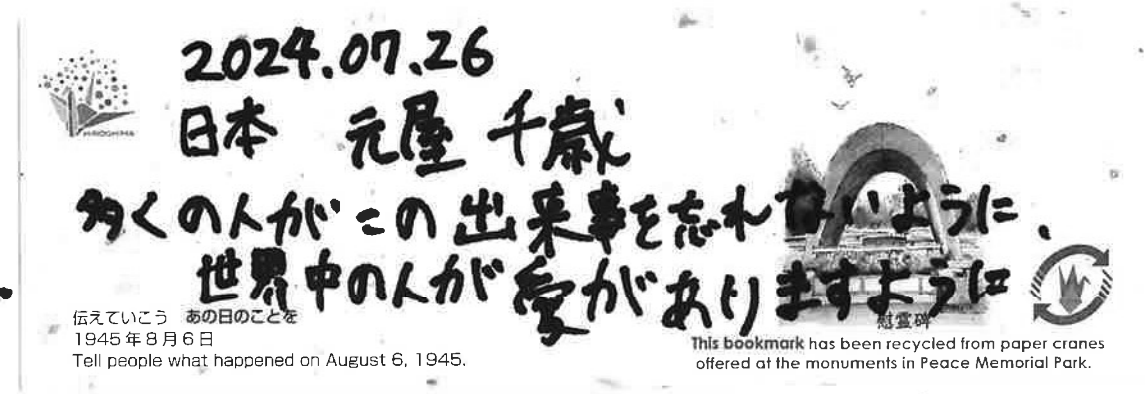 2024.07.26
日本 元屋 千歳
多くの人がこの出来事を忘れないように、
世界中の人が愛がありますように
HIROSHIMA
伝えていこう あの日のことを
1945年8月6日
Tell people what happened on August 6, 1945.
慰霊碑
This bookmark has been recycled from paper cranes
offered at the monuments in Peace Memorial Park.